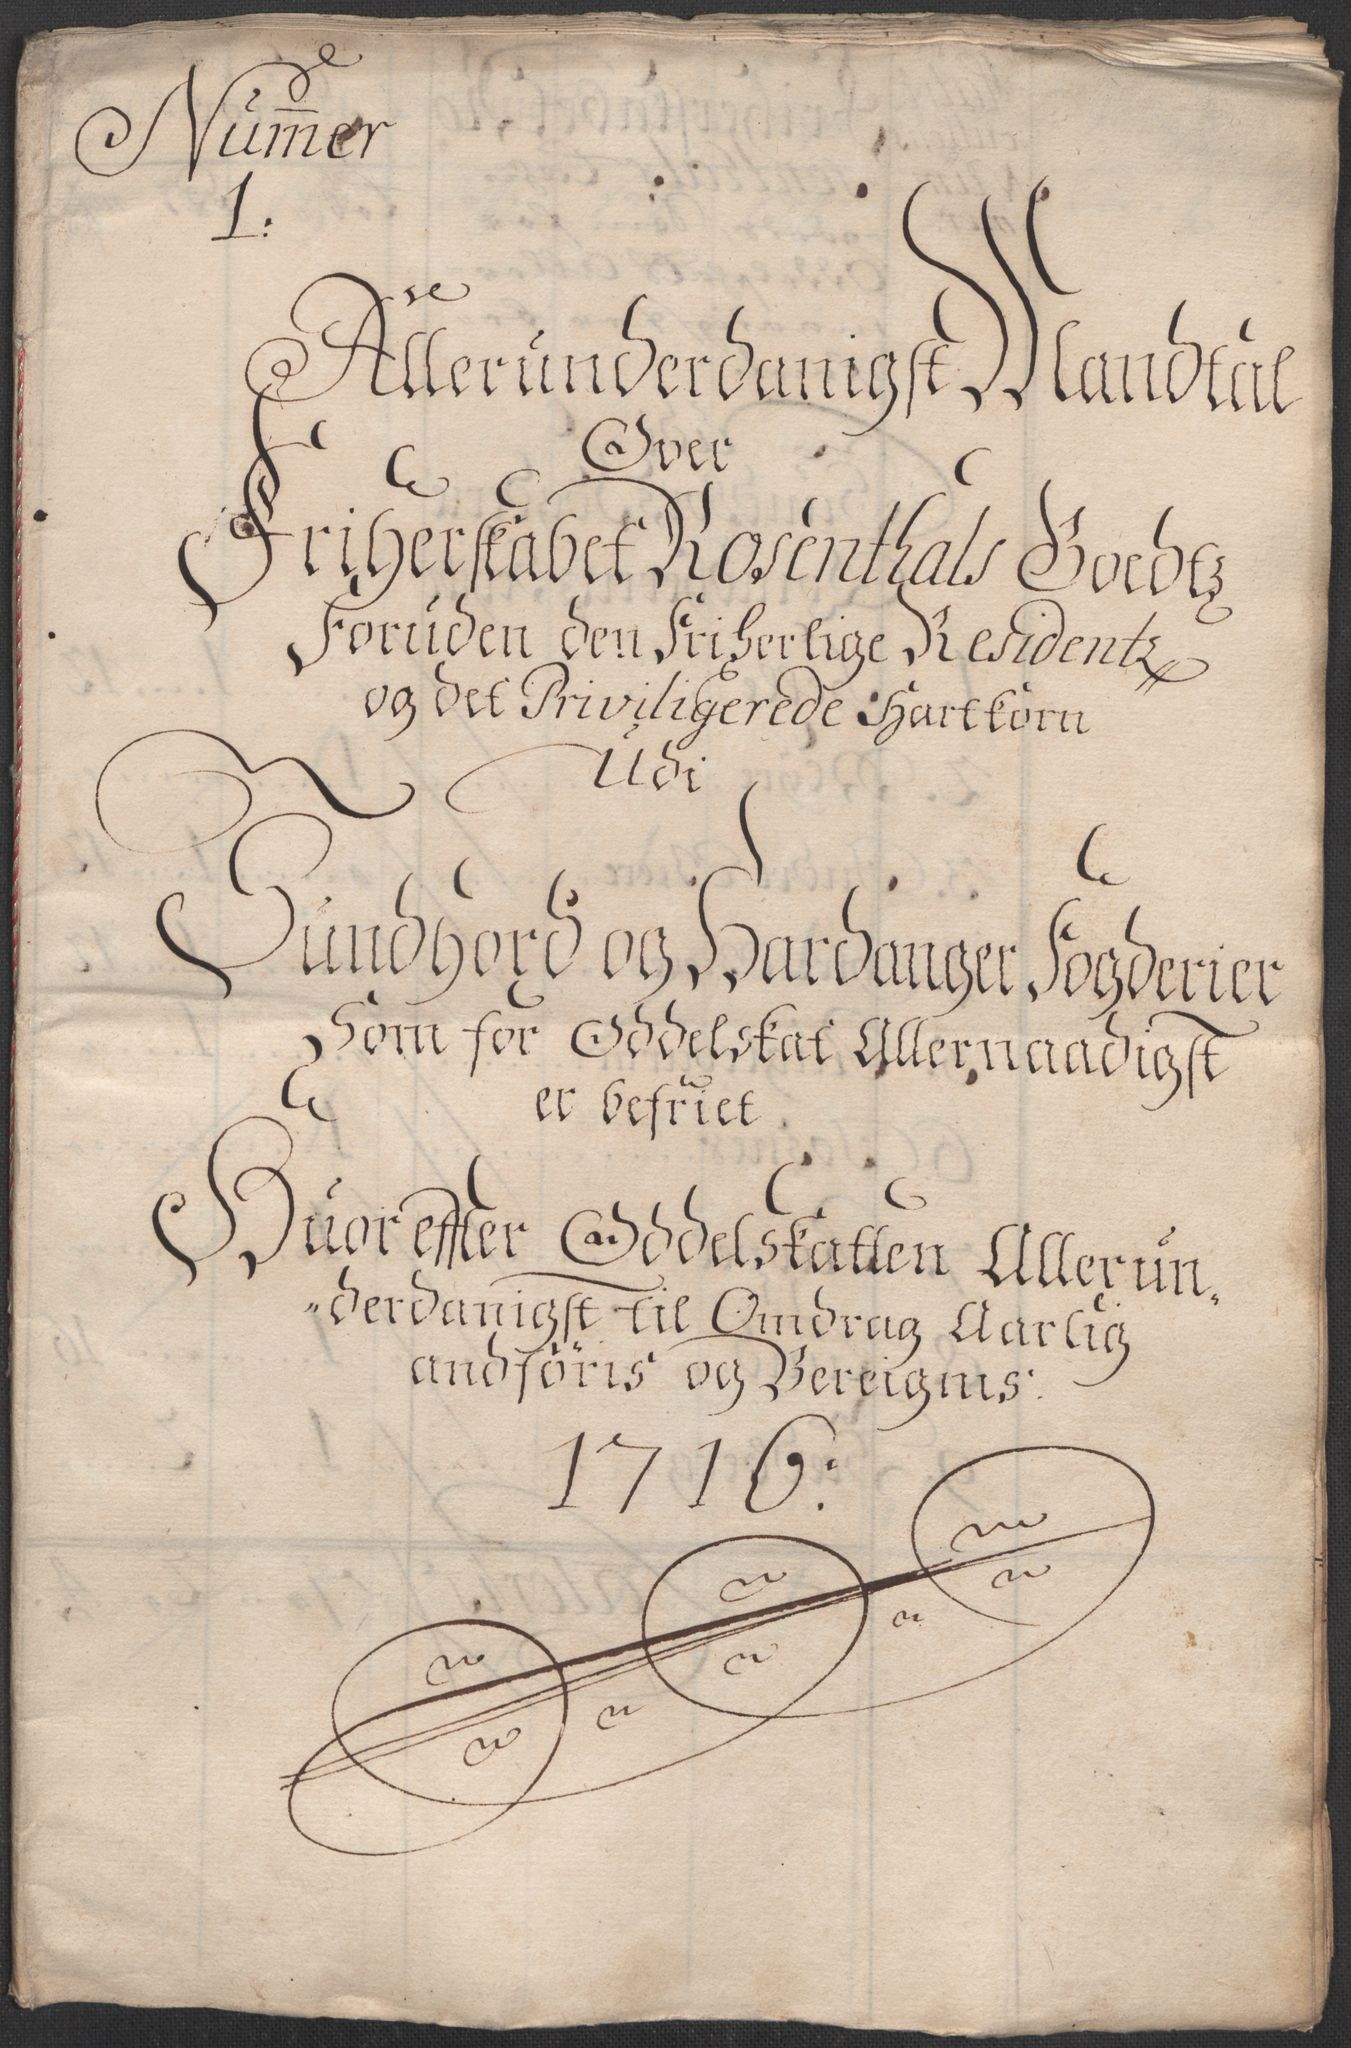 Num̅er
1:
Allerunderdanigst Mandtal
Over
Friherskabet Rosenthals Goedtz
Foruden den Friherlige Residentz
og det Priviligerede Hartkorn
Udi
Sundhord og Hardanger Fogderier
Som for Oddelskat Allernaadigst
er befriet
Huor effter Oddelskatten Allerun„
„derdanigst til Omdrag Aarlig
andföris og Bereignis:
1716: